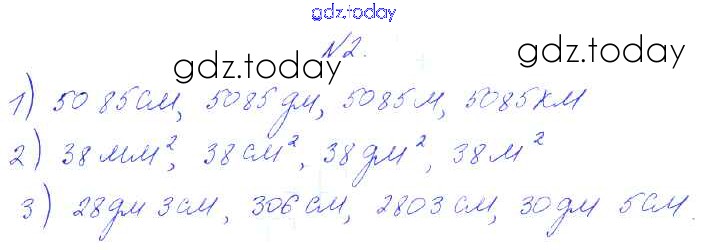 gdz.today
N2.
gdz.today gdz.today
1) 5085см, 5085дм, 5085м, 5085км
2) 38мм², 38см², 38дм², 38м²
3) 28дм 3см, 306см, 2803см, 30дм 5см.